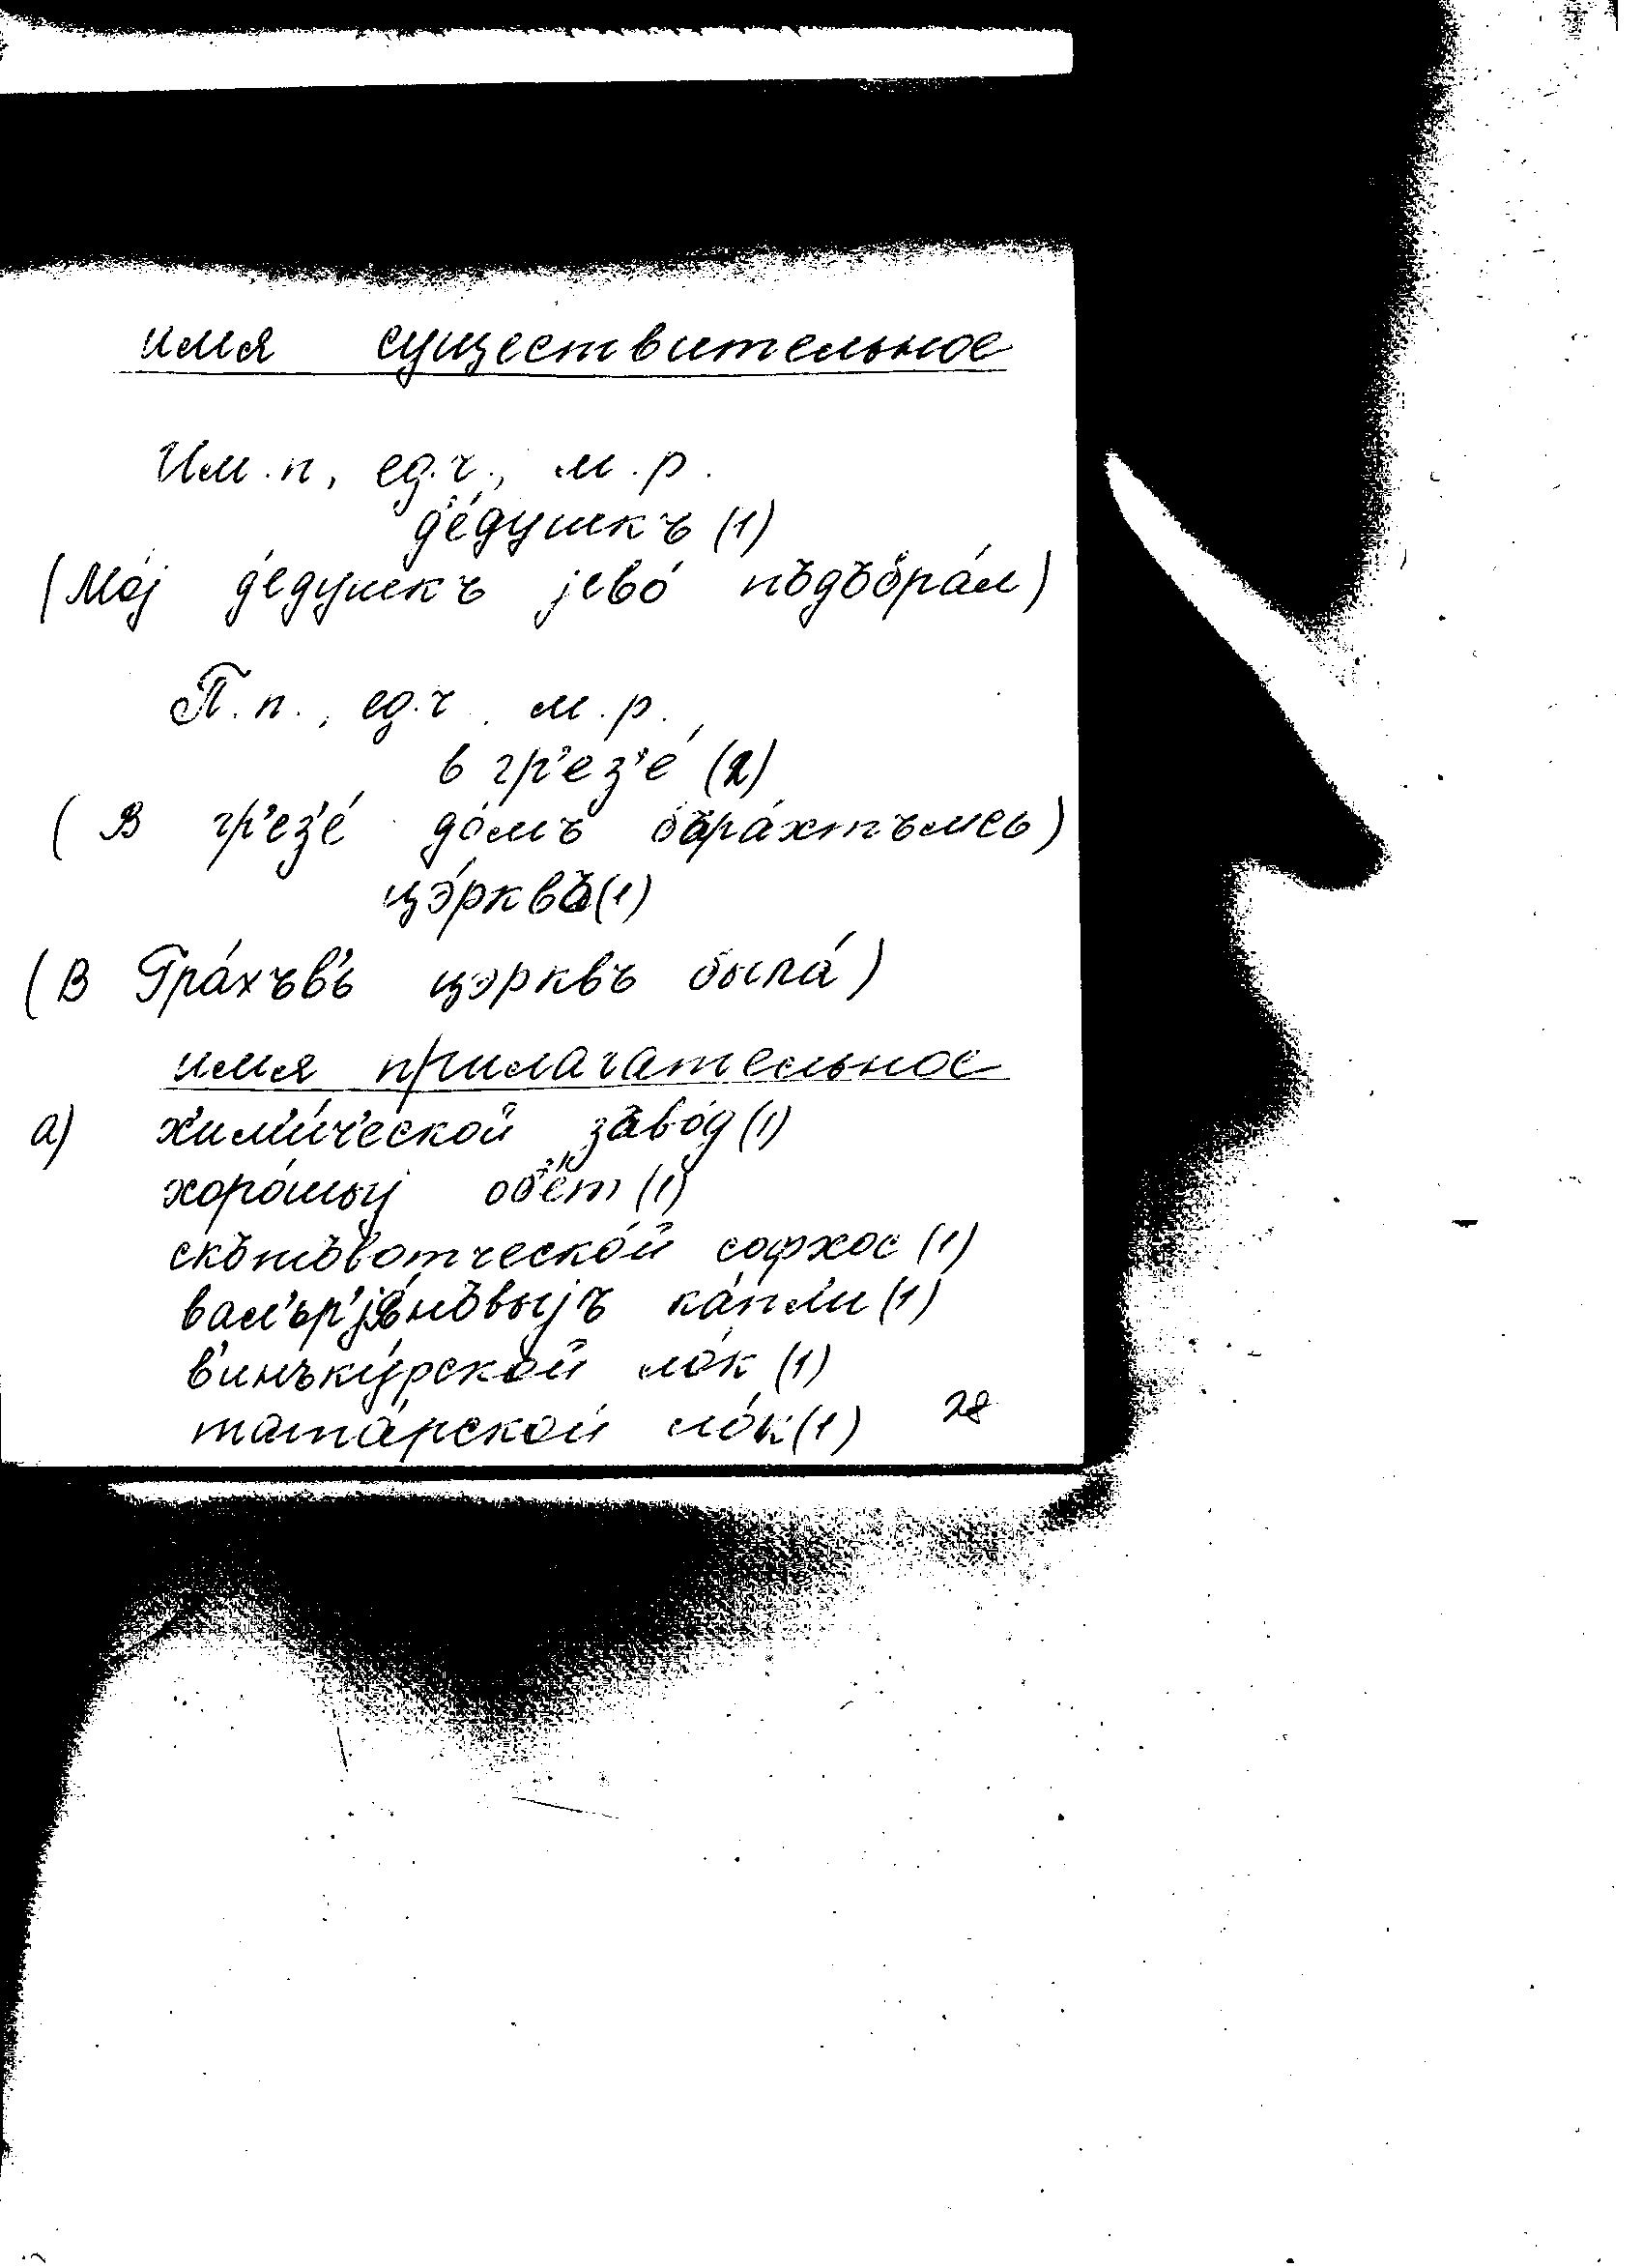 имя существительное
Им.п., ед.ч., м.р.
д'е́душкъ (1)
(Мо́j д'е́душкъ jево́ пъдъбра́л)
П.п., ед.ч., м.р.,
в гр'ез'е́ (2)
(В гр'ез'е́ до́мъ
цэ́рквъ (1)
(В Гра́хъв'ь цэрквъ была́)
имя прилагательное
а) х'им'и́ч'еской зъво́д (1)
хоро́шыj об'е́т (1)
скътъво́тческой софхос (1)
вал'ьр'jа́нъвыjъ ка́пл'и (1)
в'инъку́рской ло́к (1)
тата́рской ло́к (1)
28